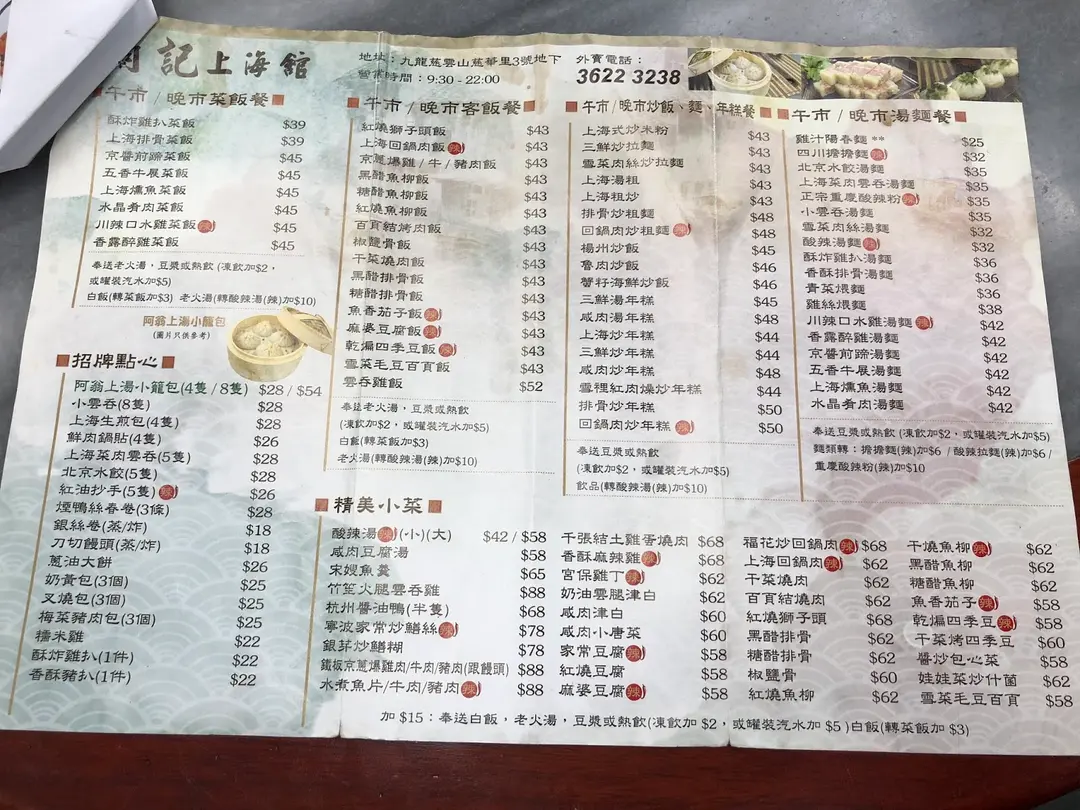 記上海館
地址：九龍慈雲山慈華里3號地下
營業時間：9:30 - 22:00
外賣電話：
3622 3238
午市 / 晚市菜飯餐
酥炸雞扒菜飯 $39
上海排骨菜飯 $39
京醬前蹄菜飯 $45
五香牛展菜飯 $45
上海燻魚菜飯 $45
水晶肴肉菜飯 $45
川辣口水雞菜飯(辣) $45
香露醉雞菜飯 $45
奉送老火湯，豆漿或熱飲 (凍飲加$2，
或罐裝汽水加$5)
白飯(轉菜飯加$3) 老火湯(轉酸辣湯(辣)加$10)
阿翁上湯小籠包
(圖片只供參考)
招牌點心
阿翁上湯小籠包(4隻 / 8隻) $28 / $54
小雲吞(8隻) $28
上海生煎包(4隻) $28
鮮肉鍋貼(4隻) $26
上海菜肉雲吞(5隻) $28
北京水餃(5隻) $28
紅油抄手(5隻)(辣) $26
煙鴨絲春卷(3條) $28
銀絲卷(蒸/炸) $18
刀切饅頭(蒸/炸) $18
蔥油大餅 $26
奶黃包(3個) $25
叉燒包(3個) $25
梅菜豬肉包(3個) $25
糯米雞 $22
酥炸雞扒(1件) $22
香酥豬扒(1件) $22
午市 / 晚市客飯餐
紅燒獅子頭飯 $43
上海回鍋肉飯(辣) $43
京蔥爆雞 / 牛 / 豬肉飯 $43
黑醋魚柳飯 $43
糖醋魚柳飯 $43
紅燒魚柳飯 $43
百頁結烤肉飯 $43
椒鹽骨飯 $43
干菜燒肉飯 $43
黑醋排骨飯 $43
糖醋排骨飯 $43
魚香茄子飯(辣) $43
麻婆豆腐飯(辣) $43
乾煸四季豆飯(辣) $43
雪菜毛豆百頁飯 $43
雲吞雞飯 $52
奉送老火湯，豆漿或熱飲
(凍飲加$2，或罐裝汽水加$5)
白飯(轉菜飯加$3)
老火湯(轉酸辣湯(辣)加$10)
午市 / 晚市炒飯、麵、年糕餐
上海式炒米粉 $43
三鮮炒拉麵 $43
雪菜肉絲炒拉麵 $43
上海湯粗 $43
上海粗炒 $43
排骨炒粗麵 $48
回鍋肉炒粗麵(辣) $48
楊州炒飯 $45
魯肉炒飯 $46
蟹籽海鮮炒飯 $46
三鮮湯年糕 $45
咸肉湯年糕 $48
上海炒年糕 $44
三鮮炒年糕 $44
咸肉炒年糕 $48
雪裡紅肉燥炒年糕 $44
排骨炒年糕 $50
回鍋肉炒年糕(辣) $50
奉送豆漿或熱飲
(凍飲加$2，或罐裝汽水加$5)
飲品(轉酸辣湯(辣)加$10)
午市 / 晚市湯麵餐
雞汁陽春麵 ** $25
四川擔擔麵(辣) $32
北京水餃湯麵 $35
上海菜肉雲吞湯麵 $35
正宗重慶酸辣粉(辣) $35
小雲吞湯麵 $35
雪菜肉絲湯麵 $32
酸辣湯麵(辣) $32
酥炸雞扒湯麵 $36
香酥排骨湯麵 $36
青菜煨麵 $36
雞絲煨麵 $38
川辣口水雞湯麵(辣) $42
香露醉雞湯麵 $42
京醬前蹄湯麵 $42
五香牛展湯麵 $42
上海燻魚湯麵 $42
水晶肴肉湯麵 $42
奉送豆漿或熱飲 (凍飲加$2，或罐裝汽水加$5)
麵類轉：擔擔(辣)加$6 / 酸辣拉麵(辣)加$6 /
重慶酸辣粉(辣)加$10
精美小菜
酸辣湯(辣)(小)(大) $42 / $58
咸肉豆腐湯 $58
宋嫂魚羹 $65
竹笙火腿雲吞雞 $88
杭州醬油鴨(半隻) $68
寧波家常炒鱔絲(辣) $78
銀芽炒鱔糊 $78
鐵板京蔥爆雞肉/牛肉/豬肉(跟饅頭) $88
水煮魚片/牛肉/豬肉(辣) $88
千張結土雞蛋燒肉 $68
香酥麻辣雞(辣) $68
宮保雞丁(辣) $62
奶油雲腿津白 $62
咸肉津白 $60
咸肉小唐菜 $60
家常豆腐(辣) $58
紅燒豆腐 $58
麻婆豆腐(辣) $58
福花炒回鍋肉(辣) $68
上海回鍋肉(辣) $62
干菜燒肉 $62
百頁結燒肉 $62
紅燒獅子頭 $68
黑醋排骨 $62
糖醋排骨 $62
椒鹽骨 $60
紅燒魚柳 $62
干燒魚柳(辣) $62
黑醋魚柳 $62
糖醋魚柳 $62
魚香茄子(辣) $58
乾煸四季豆(辣) $58
干菜烤四季豆 $60
醬炒包心菜 $58
娃娃菜炒什菌 $62
雪菜毛豆百頁 $58
加 $15：奉送白飯，老火湯，豆漿或熱飲(凍飲加 $2，或罐裝汽水加 $5 )白飯(轉菜飯加 $3)